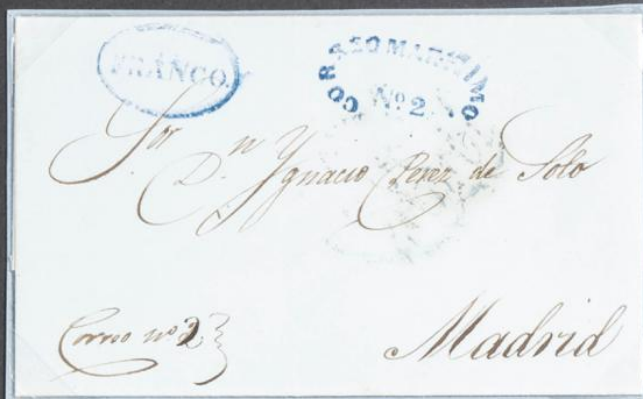 FRANCO
CORREO MARITIMO
Nº 2
Sor
D.n Ygnacio Perez de Soto
Correo nº 2
Madrid